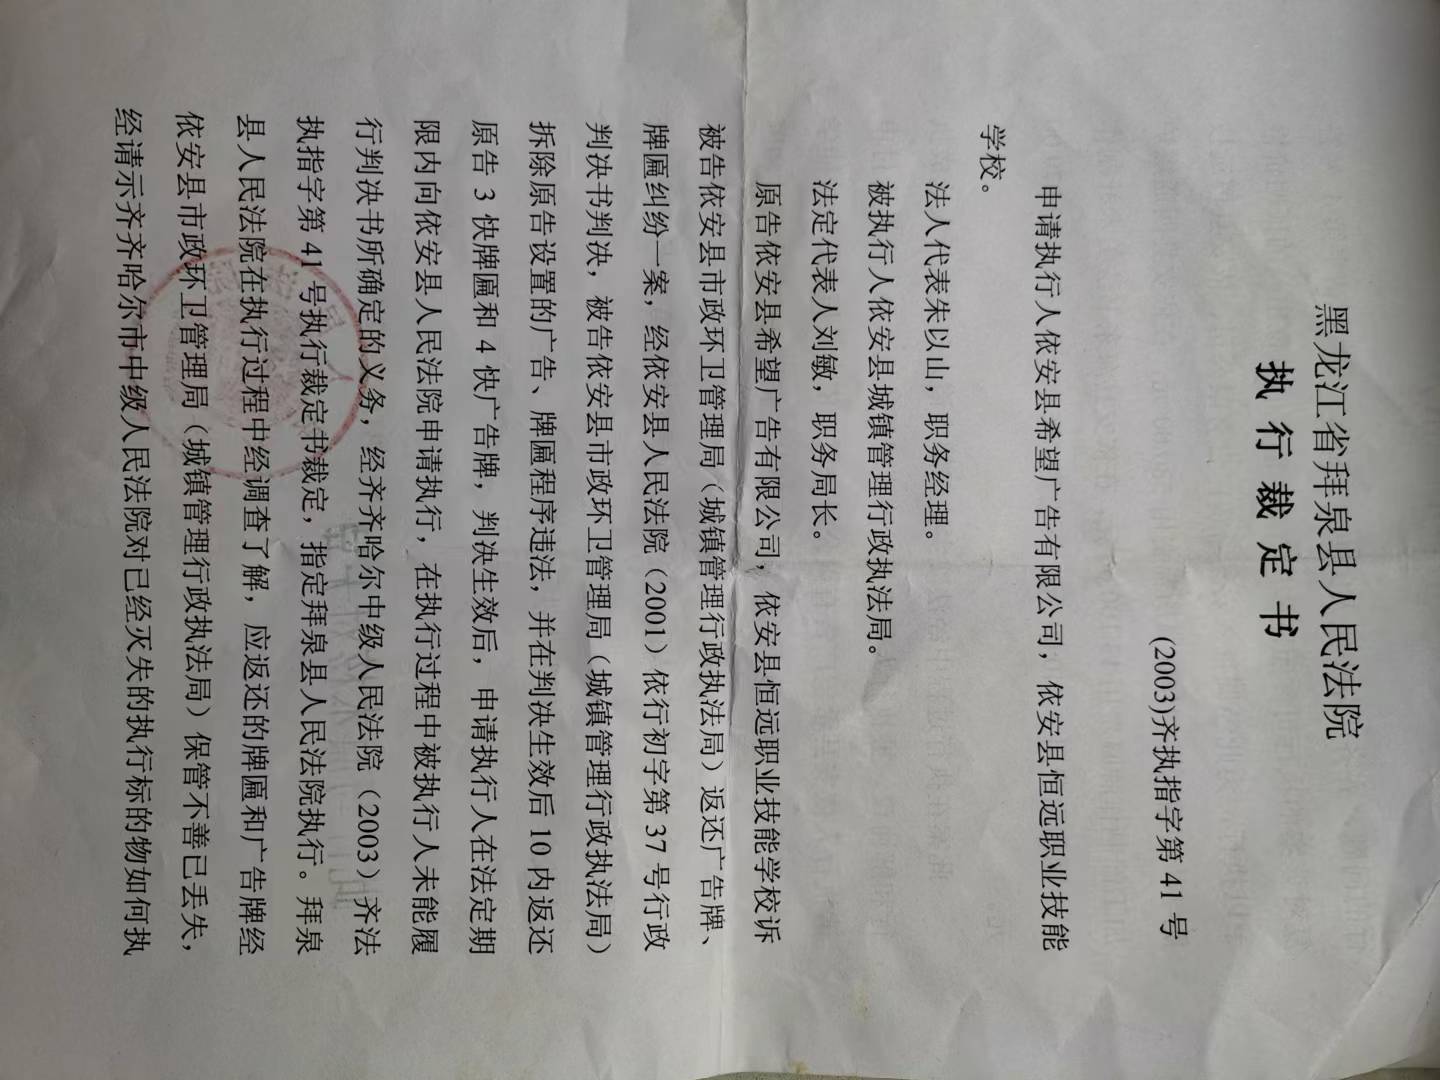 黑龙江省拜泉县人民法院
执行裁定书
(2003)齐执指字第 41 号
申请执行人依安县希望广告有限公司，依安县恒远职业技能
学校。
法人代表朱以山，职务经理。
被执行人依安县城镇管理行政执法局。
法定代表人刘敏，职务局长。
原告依安县希望广告有限公司，依安县恒远职业技能学校诉
被告依安县市政环卫管理局（城镇管理行政执法局）返还广告牌、
牌匾纠纷一案，经依安县人民法院（2001）依行初字第 37 号行政
判决书判决，被告依安县市政环卫管理局（城镇管理行政执法局）
拆除原告设置的广告、牌匾程序违法，并在判决生效后 10 内返还
原告 3 快牌匾和 4 快广告牌，判决生效后，申请执行人在法定期
限内向依安县人民法院申请执行，在执行过程中被执行人未能履
行判决书所确定的义务，经齐齐哈尔中级人民法院（2003）齐法
执指字第 41 号执行裁定书裁定，指定拜泉县人民法院执行。拜泉
县人民法院在执行过程中经调查了解，应返还的牌匾和广告牌经
依安县市政环卫管理局（城镇管理行政执法局）保管不善已丢失，
经请示齐齐哈尔市中级人民法院对已经灭失的执行标的物如何执